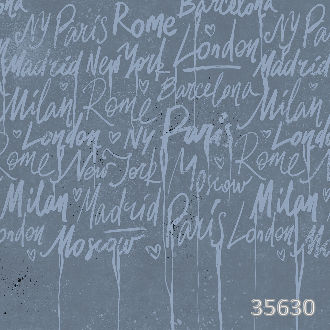 Barcelona
NY Paris Rome London
Madrid New York Madrid
Milan Rome Barcelona Milan
London NY Paris London
Rome New York Moscow Rome
Milan Madrid Paris Milan
London Moscow London
35630